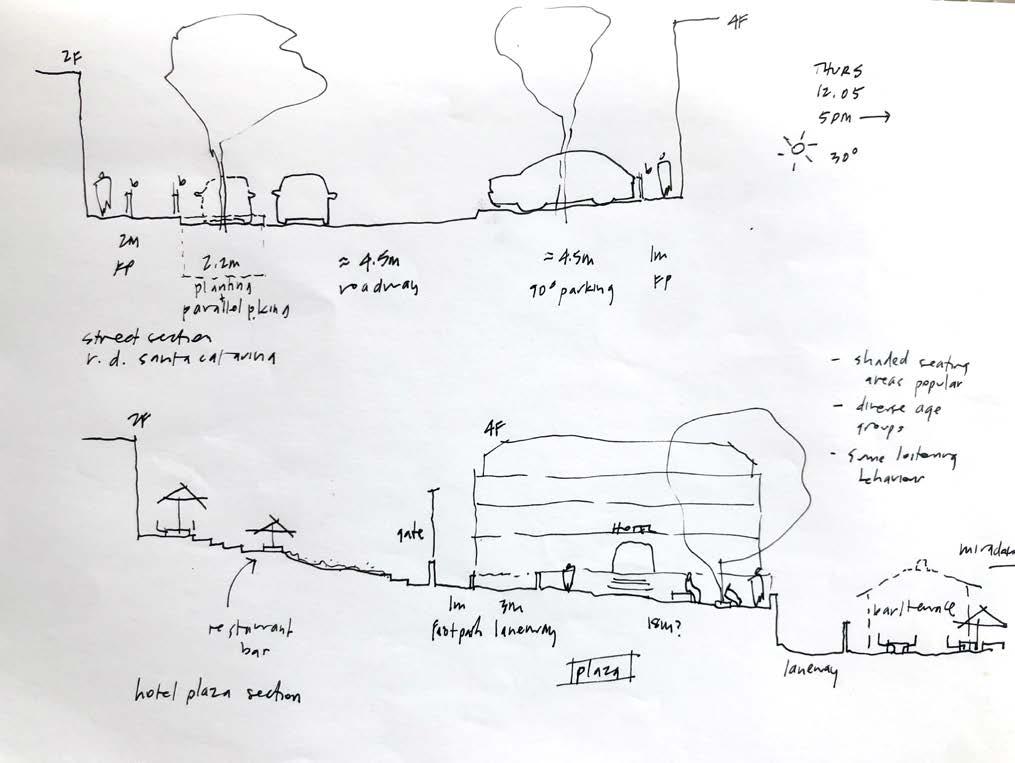 2F
4F
THURS
12.05
5PM →
30°
b
b
b
2M
FP
2.2m
planting
+
parallel pking
≈ 4.5m
roadway
≈ 4.5m
90° parking
1m
FP
street section
r. d. santa catarina
- shaded seating
areas popular
- diverse age
groups
- some loitering
behaviour
2F
4F
gate
HOTEL
restaurant
bar
1m 3m
footpath laneway
18m?
plaza
bar/terrace
laneway
hotel plaza section